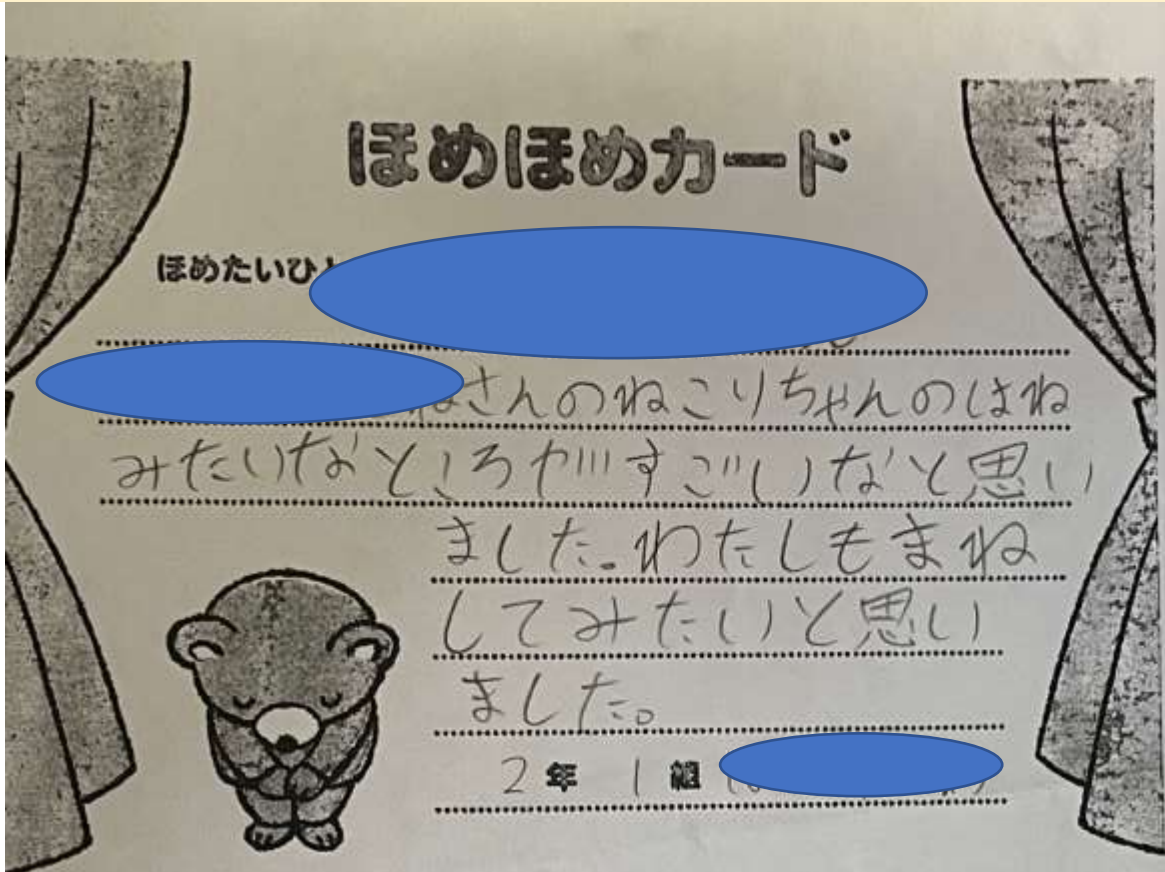 ほめほめカード
ほめたいひ
さんのねこりちゃんのはね
みたいなところがすごいなと思い
ました。わたしもまね
してみたいと思い
ました。
2年 1組